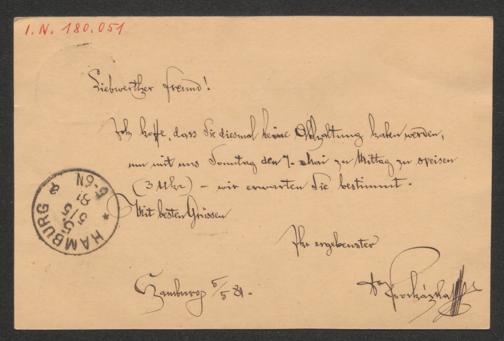 I.N. 180.051
Liebwerther Freund!
Ich hoffe, dass Sie diesmal keine Abhaltung haben werden,
um mit uns Sonntag den 7. Mai zu Mittag zu speisen
(3 Uhr) – wir erwarten Sie bestimmt.
Mit besten Grüssen
Ihr ergebenster
Prochazka
Hamburg 5/5 81.
* HAMBURG *
5/5
81
6-6N